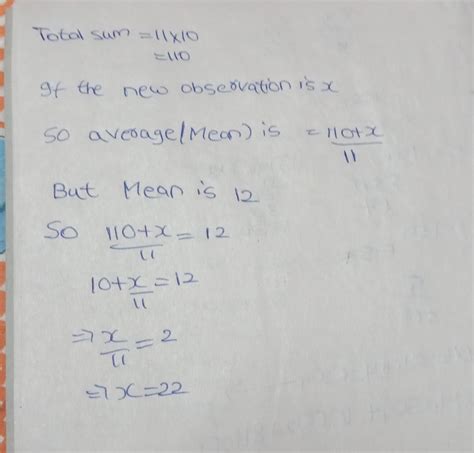 Total sum = 11x10
= 110
If the new observation is x
So average/Mean) is = 110+x
11
But Mean is 12
So 110+x = 12
11
10+x = 12
11
⇒ x = 2
11
⇒ x = 22